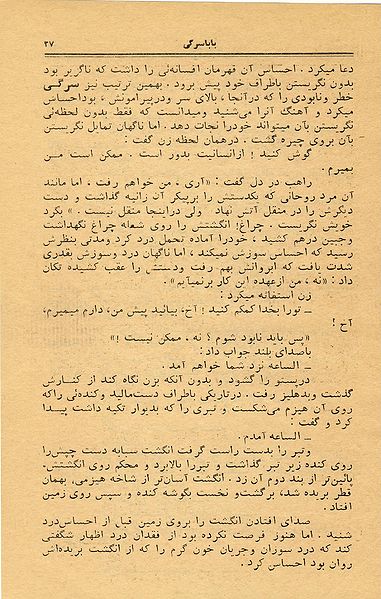 باباسرگی ۲۷
دعا میکرد . احساس آن قهرمان افسانه‌ئی را داشت که ناگزیر بود
بدون نگریستن باطراف خود پیش برود . بهمین ترتیب نیز سرگی
خطر ونابودی را که درآنجا ، بالای سر ودرپیرامونش ، بوداحساس
میکرد و آهنگ آنرا می‌شنید ومیدانست که فقط بدون لحظه‌ئی
نگریستن بآن میتواند خودرا نجات دهد . اما ناگهان تمایل نگریستن
بآن بروی چیره گشت . درهمان لحظه زن گفت :
گوش کنید ! ازانسانیت بدور است . ممکن است مـن
بمیرم .
راهب در دل گفت : «آری ، من خواهم رفت ، اما مانند
آن مرد روحانی که یکدستش را برپیکر آن زانیه گذاشت و دست
دیگرش را در منقل آتش نهاد ولی دراینجا منقل نیست . » بگرد
خویش نگریست . چراغ! انگشتش را روی شعله چراغ نگهداشت
وجبین درهم کشید ، خودرا آماده تحمل درد کرد ومدتی بنظرش
رسید که احساس سوزش نمیکند ، اما ناگهان درد وسوزش بقدری
شدت یافت که ابروانش بهم رفت ودستش را عقب کشیده تکان
داد : «نه ، من ازعهده این کار برنمیایم» .
زن استغاثه میکرد :
ــ تورا بخدا کمکم کنید ! آخ، بیائید پیش من، دارم میمیرم،
آخ !
«پس باید نابود شوم ؟ نه ، ممکن نیست !»
باصدای بلند جواب داد :
ــ الساعه نزد شما خواهم آمد .
درپستو را گشود و بدون آنکه بزن نگاه کند از کنـارش
گذشت وبدهلیز رفت . درتاریکی باطراف دست‌مالید وکنده‌ئی راکه
روی آن هیزم می‌شکست و تبری را که بدیوار تکیه داشت پیـدا
کرد و گفت :
ــ الساعه آمدم .
وتبر را بدست راست گرفت انگشت سبابه دست چپش‌را
روی کنده زیر تبر گذاشت و تبررا بالابرد و محکم روی انگشتش،
پائین‌تر از بند دوم آن زد . انگشت آسان‌تر از شاخه هیزمی، بهمان
قطر بریده شد، برگشت‌و نخست بگوشه کنده و سپس روی زمین
افتاد .
صدای افتادن انگشت را بروی زمین قبل از احساس‌درد
شنید . اما هنوز فرصت نکرده بود از فقدان درد اظهار شگفتی
کند که درد سوزان وجریان خون گرم را که از انگشت بریده‌اش
روان بود احساس کرد .